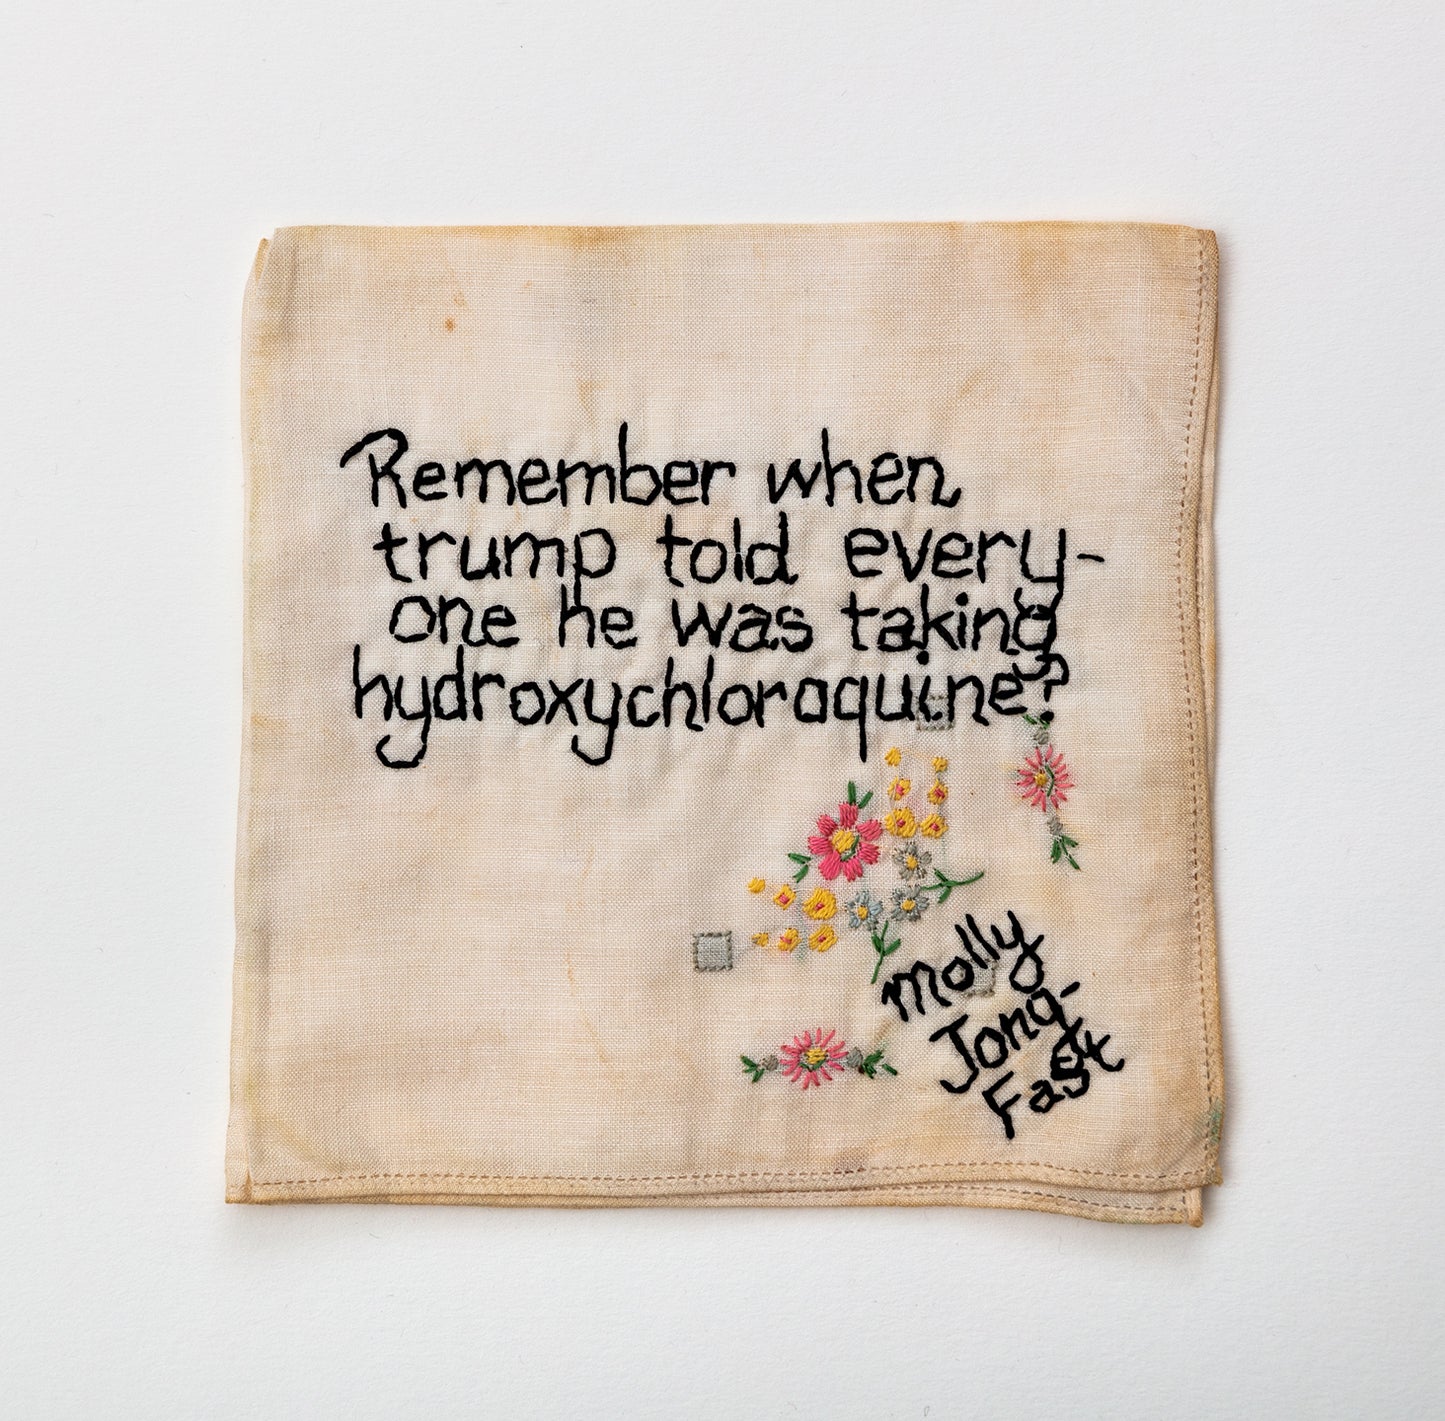 Remember when
trump told every-
one he was taking
hydroxychloraquine?
Molly
Jong-
Fast